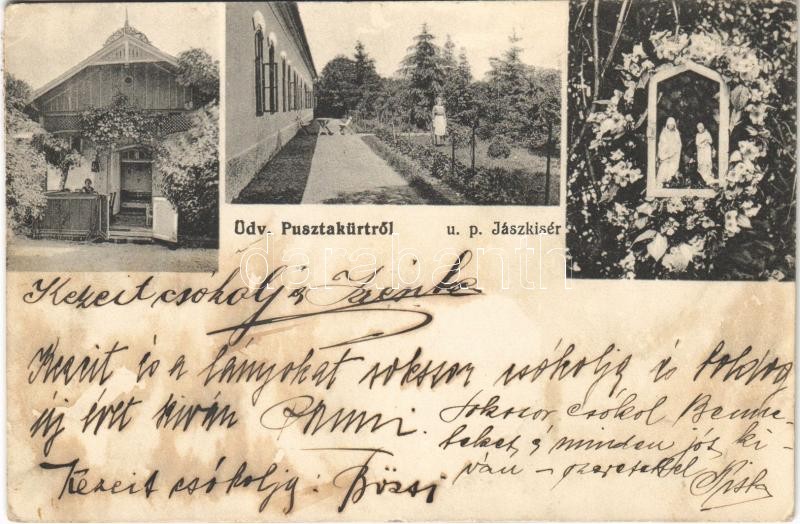 Üdv. Pusztakürtről u. p. Jászkisér
darabanth
Kezeit csókolja Irénke
Kezeit és a lányokat sokszor csókolja és boldog
új évet kiván Panni.
Sokszor csókol Benne-
teket, s minden jót ki-
ván – szeretettel
Pista
Kezeit csókolja: Bözsi